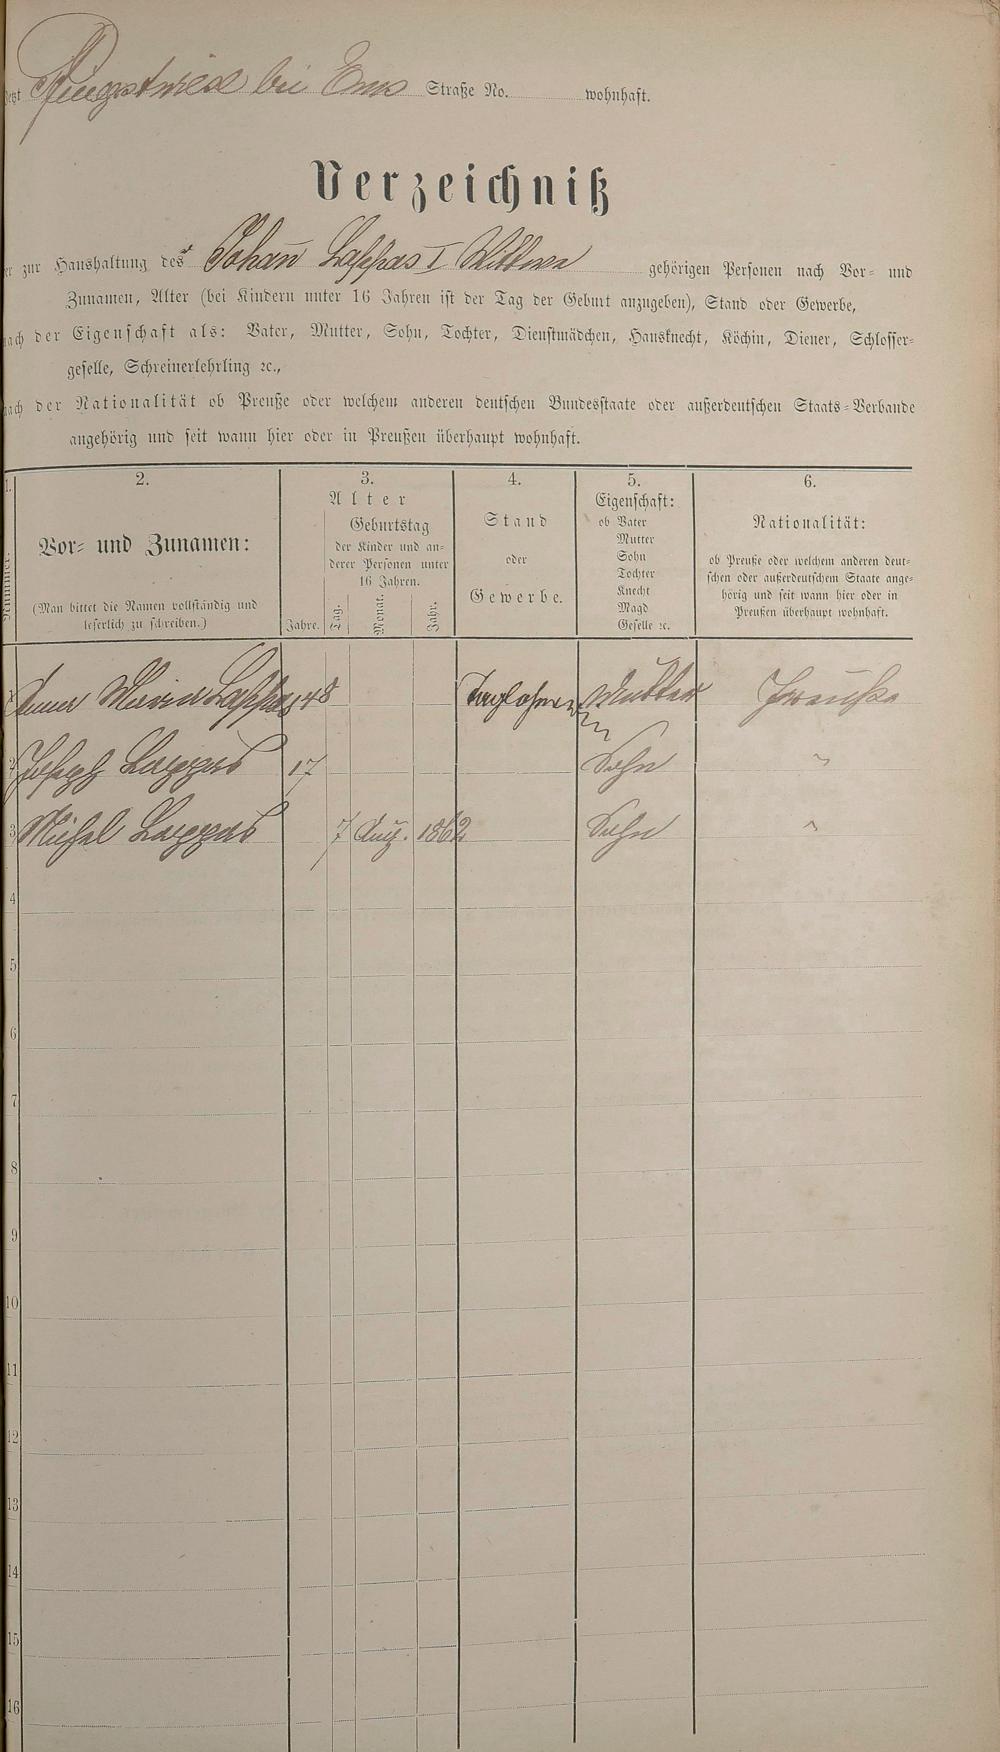 jetzt Pfingstwiese bei Ems Straße No. wohnhaft.
Verzeichniß
der zur Haushaltung des Johañ Lappas I Wittwe gehörigen Personen nach Vor- und
Zunamen, Alter (bei Kindern unter 16 Jahren ist der Tag der Geburt anzugeben), Stand oder Gewerbe,
nach der Eigenschaft als: Vater, Mutter, Sohn, Tochter, Dienstmädchen, Hausknecht, Köchin, Diener, Schlosser-
geselle, Schreinerlehrling ꝛc.,
nach der Nationalität ob Preuße oder welchem anderen deutschen Bundesstaate oder außerdeutschen Staats-Verbande
angehörig und seit wann hier oder in Preußen überhaupt wohnhaft.
1. 2. 3. 4. 5. 6.
Nummer.
Vor- und Zunamen:
(Man bittet die Namen vollständig und
leserlich zu schreiben.)
Alter
Geburtstag
der Kinder und an-
derer Personen unter
16 Jahren.
Jahre. Tag. Monat. Jahr.
Stand
oder
Gewerbe.
Eigenschaft:
ob Vater
Mutter
Sohn
Tochter
Knecht
Magd
Geselle ꝛc.
Nationalität:
ob Preuße oder welchem anderen deut-
schen oder außerdeutschem Staate ange-
hörig und seit wann hier oder in
Preußen überhaupt wohnhaft.
1 Anna Maria Lappas 48 Taglöhnerin Mutter Preuße
2 Joseph Lappas 17 Sohn "
3 Michel Lappas 7 Aug. 1862 Sohn "
4
5
6
7
8
9
10
11
12
13
14
15
16